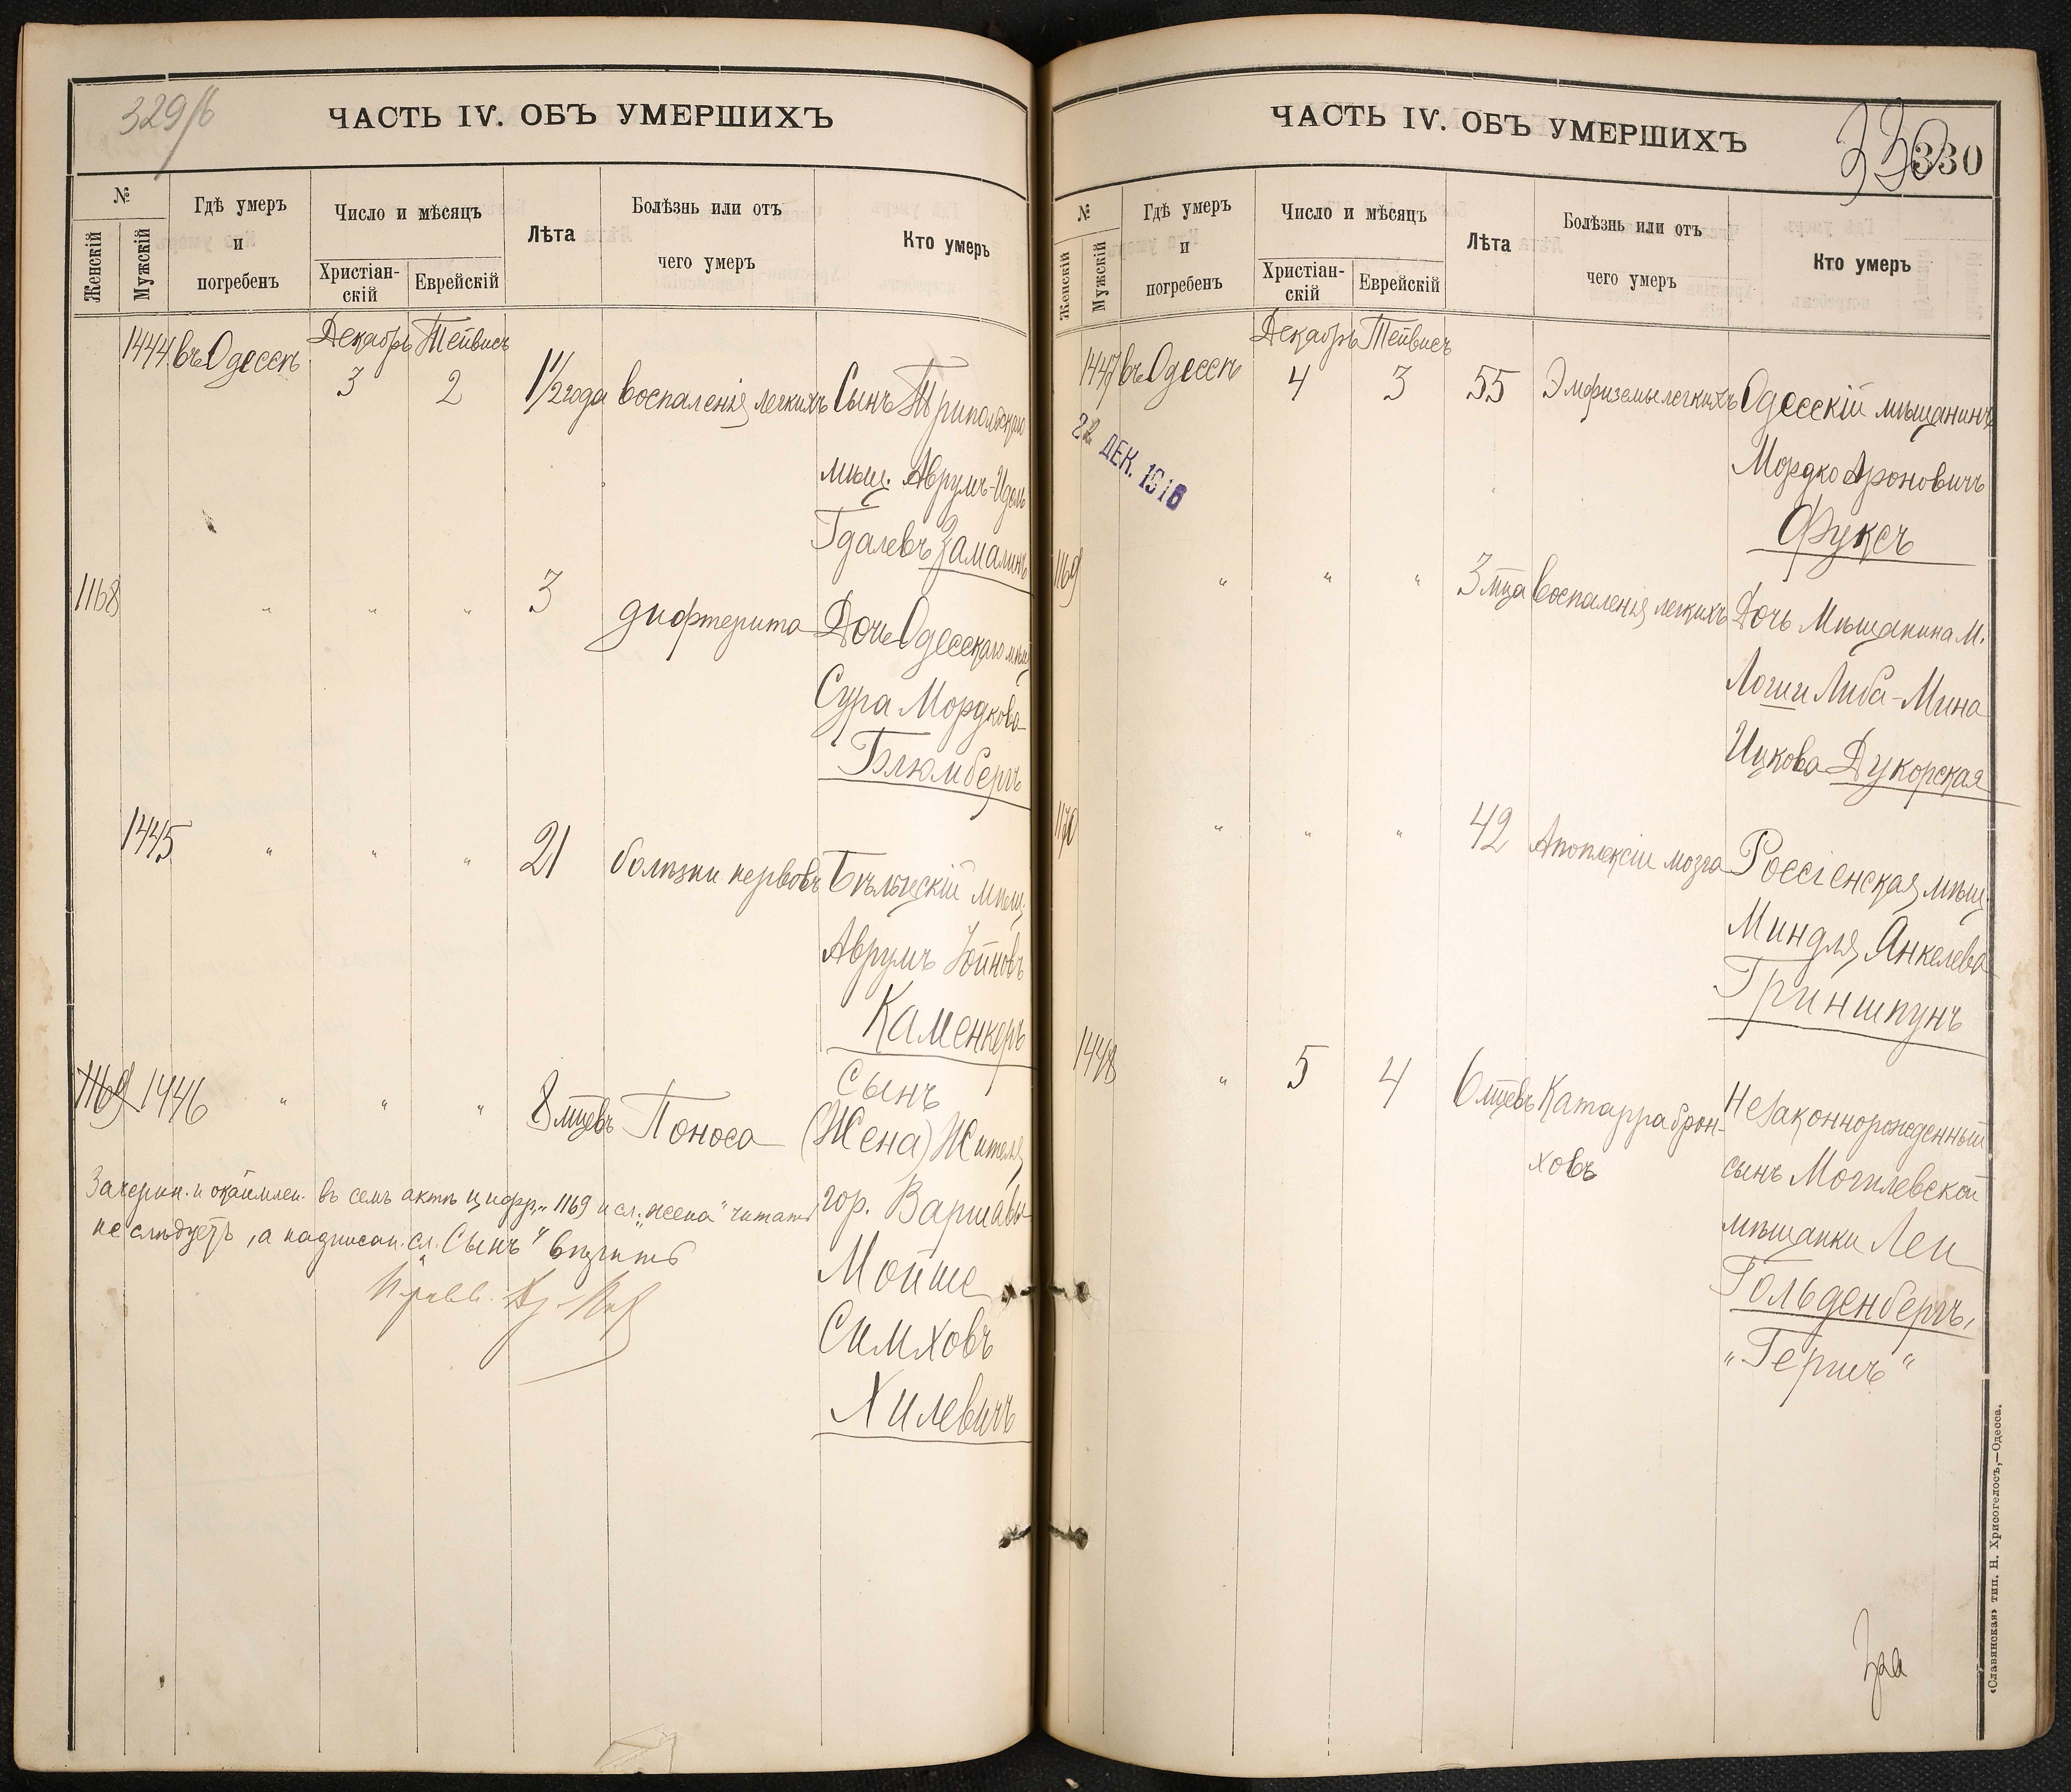 329/б
ЧАСТЬ IV. ОБЪ УМЕРШИХЪ
№
Женскій
Мужскій
Гдѣ умеръ
и
погребенъ
Число и мѣсяцъ
Христіан-
скій
Еврейскій
Лѣта
Болѣзнь или отъ
чего умеръ
Кто умеръ
Декабрь Тейвисъ
1444 въ Одессѣ 3 2 1 1/2 года воспаленія легкихъ Сынъ Трипольскаго
мѣщ. Аврумъ-Идель
Гдалевъ Замалинъ
1168 " " " 3 дифтерита Дочь Одесскаго мѣщ
Сура Мордкова
Блюмбергъ
1445 " " " 21 болѣзни нервовъ Бѣльцскій мѣщ.
Аврумъ Іойновъ
Каменкеръ
Сынъ
1169 1446 " " " 8 мцевъ Поноса (Жена) Жителя
гор. Варшавы
Мойше
Симховъ
Хилевичъ
Зачеркн. и окаймлен. въ семъ актѣ цифр. „1169 и сл. „жена" читать
не слѣдуетъ, а надписан. сл. „Сынъ"
ЧАСТЬ IV. ОБЪ УМЕРШИХЪ
330
330
№
Женскій
Мужскій
Гдѣ умеръ
и
погребенъ
Число и мѣсяцъ
Христіан-
скій
Еврейскій
Лѣта
Болѣзнь или отъ
чего умеръ
Кто умеръ
Декабрь Тейвисъ
1447 въ Одессѣ 4 3 55 Эмфиземы легкихъ Одесскій мѣщанинъ
22 ДЕК. 1916
Мордко Ароновичъ
Фуксъ
1169 " " " 3 мца Воспаленія легкихъ Дочь Мѣщанина М.
Логши Либа-Мина
Ицкова Дукорская
1170 " " " 42 Апоплексіи мозга Россіенская мѣщ.
Миндля Янкелева
Гриншпунъ
1448 " 5 4 6 мцевъ Катарра брон- Незаконнорожденный
ховъ
сынъ Могилевской
мѣщанки Леи
Гольденбергъ,
„Гершъ"
«Славянская» тип. Н. Хрисогелосъ,—Одесса.